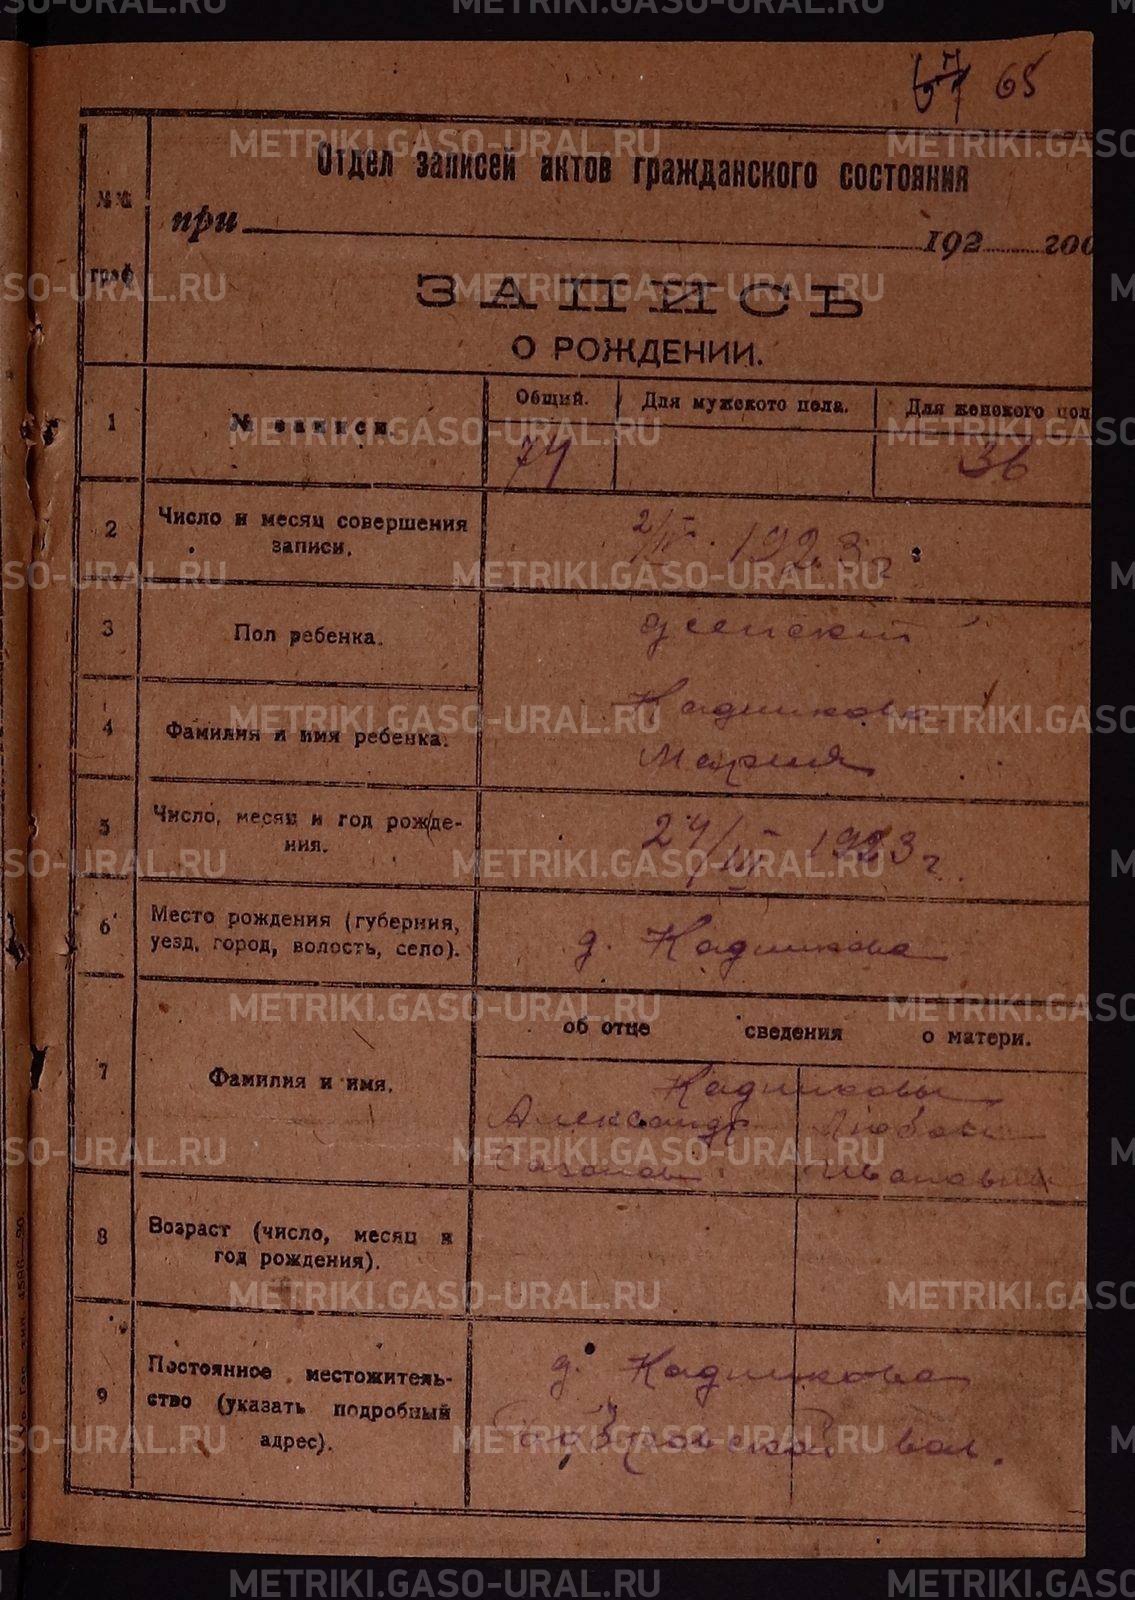 67 65
№№ граф
Отдел записей актов гражданского состояния
при 192 год
ЗАПИСЬ
О РОЖДЕНИИ.
1 № записи
Общий. Для мужского пола. Для женского пол
74 36
2 Число и месяц совершения
записи.
2/IV 1923 г
3 Пол ребенка.
женский
4 Фамилия и имя ребенка.
Кадникова
Мария
5 Число, месяц и год рожде-
ния.
24/III 1923 г.
6 Место рождения (губерния,
уезд, город, волость, село).
д. Кадникова
об отце сведения о матери.
7 Фамилия и имя.
Кадниковы
Александр Любовь
Ивановна
8 Возраст (число, месяц и
год рождения).
9 Постоянное местожитель-
ство (указать подробный
адрес).
д. Кадникова
вол.
METRIKI.GASO-URAL.RU